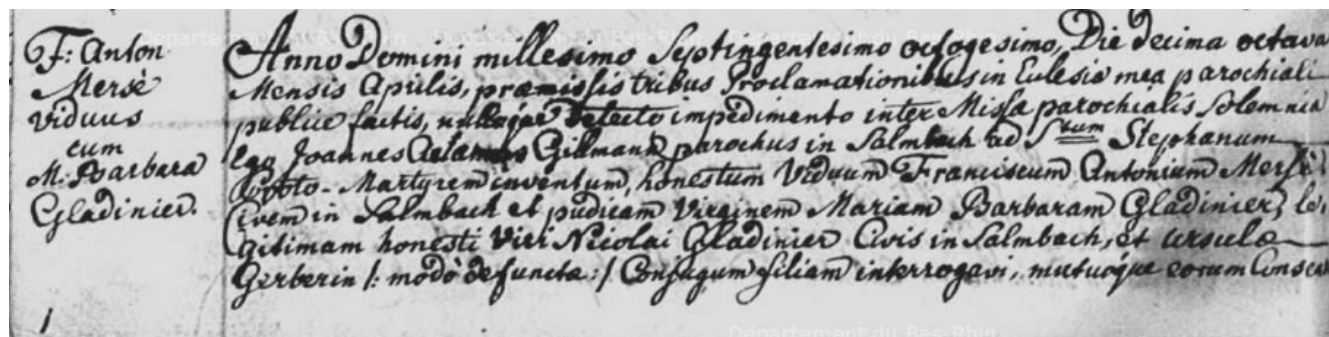 F: Anton
Mersè
viduus
cum
M: Barbara
Gladinier.
Anno Domini millesimo Septingentesimo octogesimo, Die decima octava
Mensis Aprilis, præmissis tribus Proclamationibus in Eclesia mea parochiali
publice factis, nulloque Detecto impedimento inter Missæ parochialis Solemnia
Ego Joannes Gillmann parochus in Salmbach ad Stum Stephanum
Proto-Martyrem inventum, honestum Viduum Franciscum Antonium Mersè,
Civem in Salmbach et pudicam Virginem Mariam Barbaram Gladinier, le,
gitimam honesti Viri Nicolai Gladinier Civis in Salmbach, et Ursulæ
Gerberin /: modò defunctæ :/ Conjugum filiam interrogavi, mutuóque eorum Consen
1
Departement du Bas-Rhin